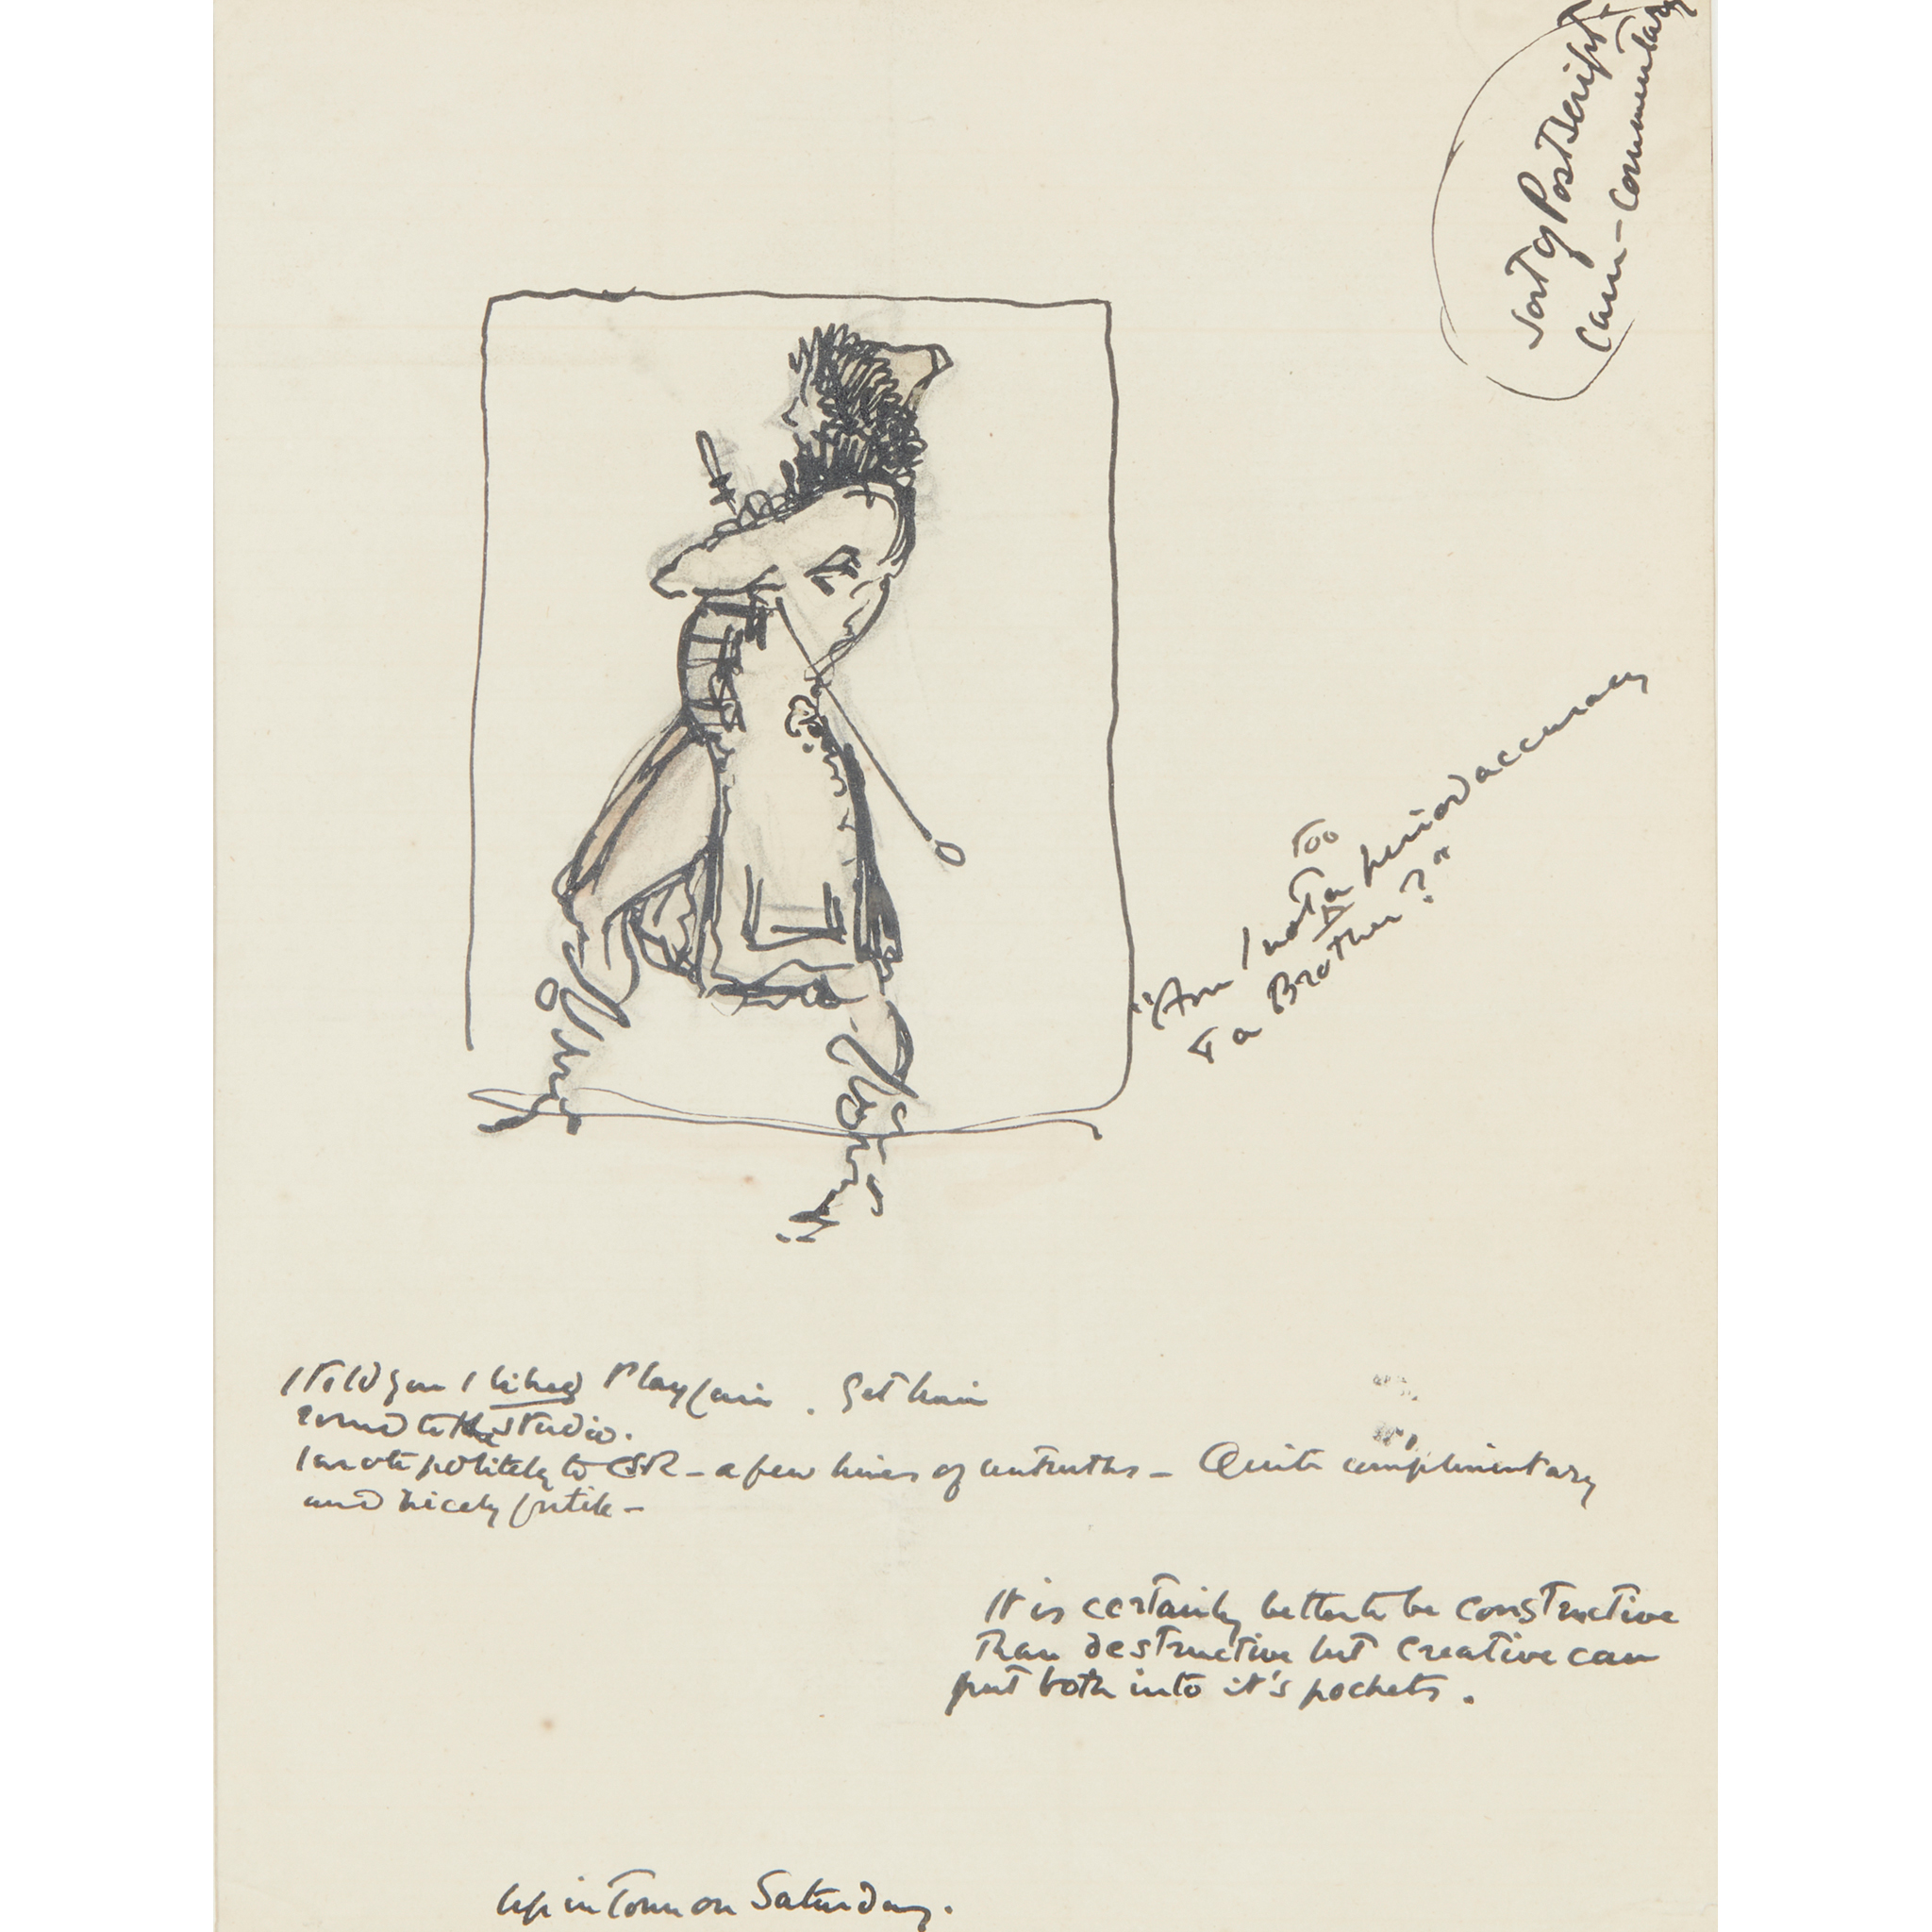 Sort of PostScript
cum-commentary
"Am I not too period accuracy
to a Brother?"
I told you I liked Playfair. Get him
round to the studio.
I wrote politely to CSR – a few lines of untruths – Quite complimentary
and nicely futile –
It is certainly better to be constructive
than destructive but creative can
put both into it's pockets.
Up in Town on Saturday.